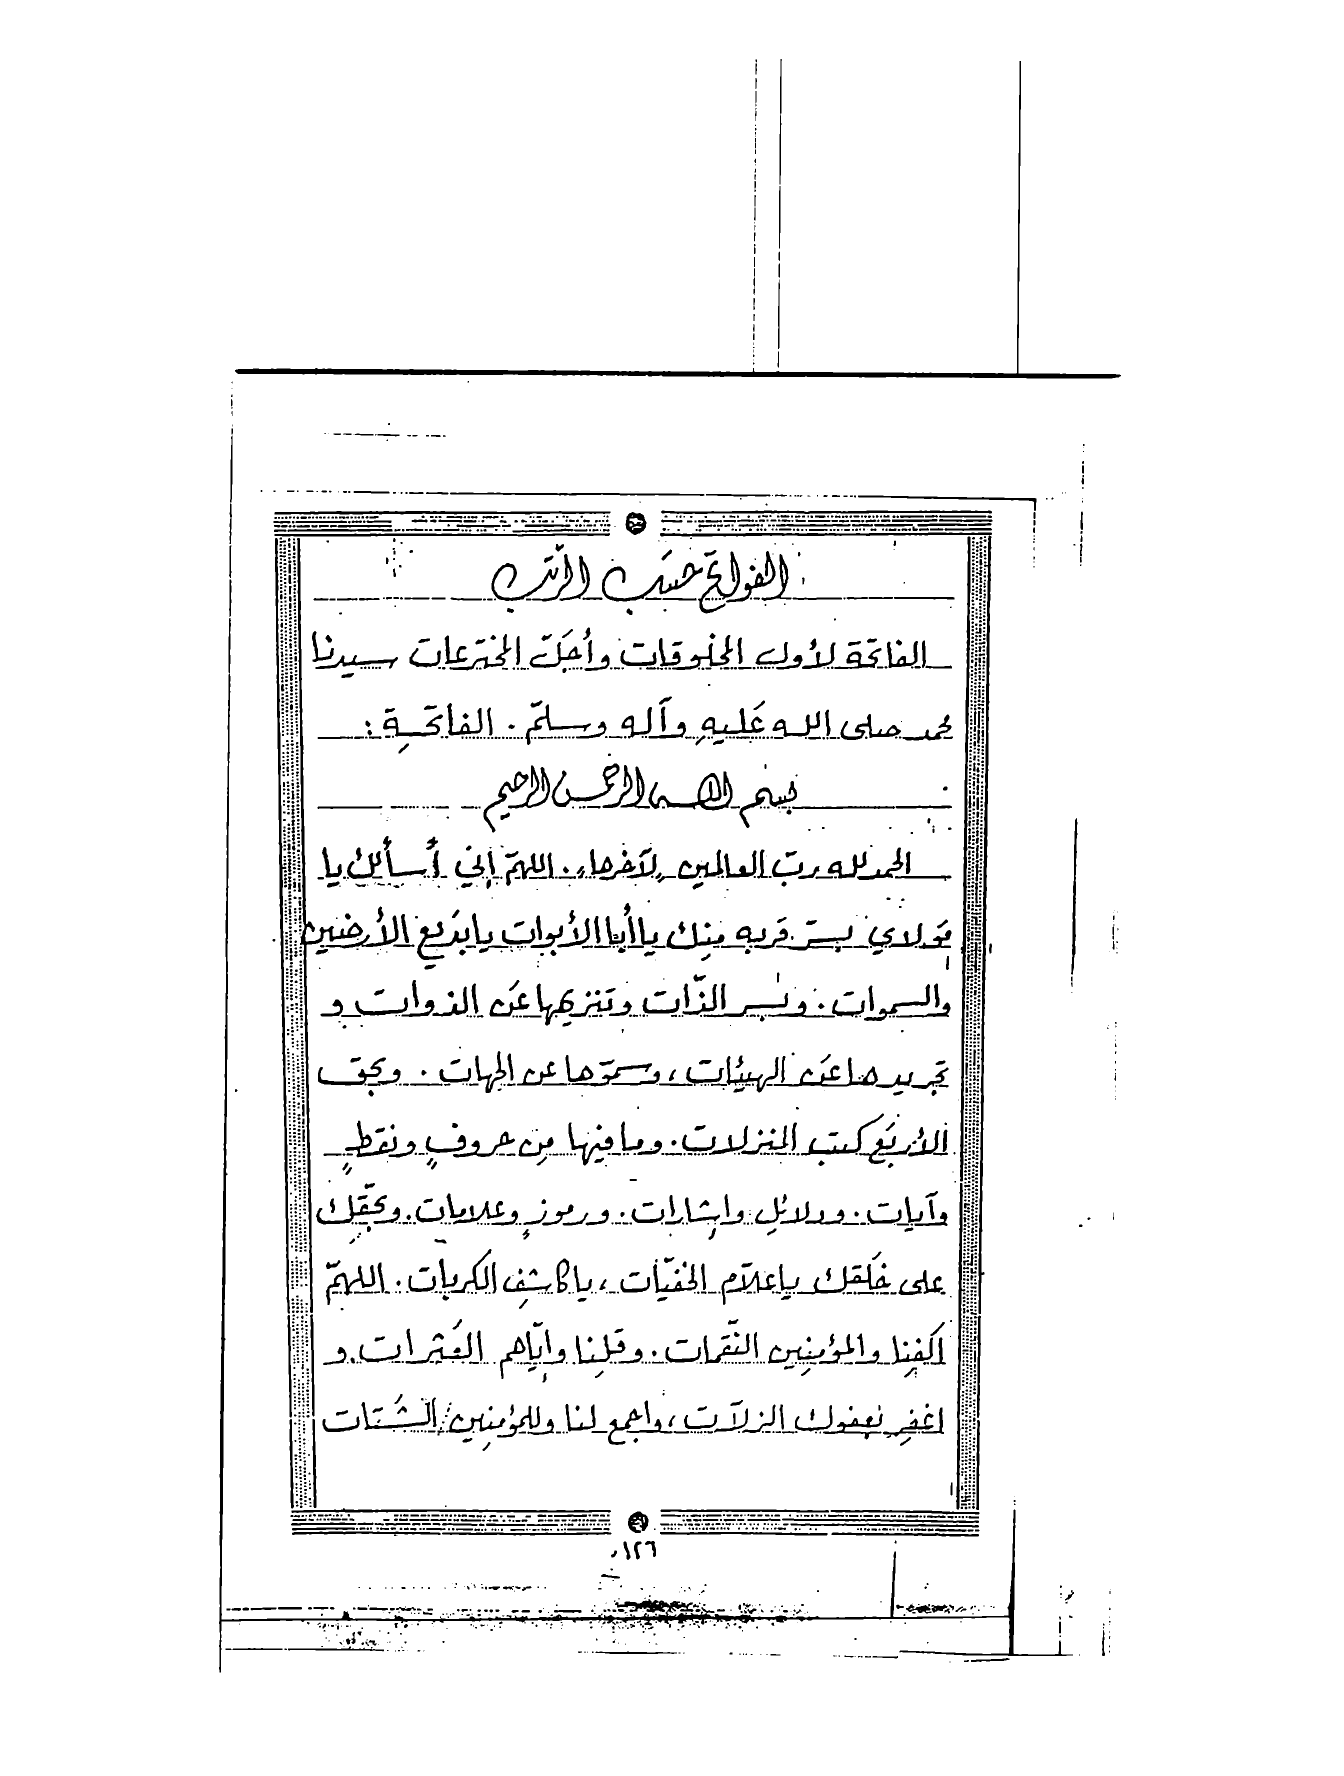 الفواتح حسب الرتب
الفاتحة لأول المخلوقات وأجَلّ المخترعات سيدنا
محمد صلى الله عَليهِ وآله وسلمّ . الفاتحَةِ :
بسم الله الرحمن الرحيم
الحمد لله ربّ العالمين "لآخرها" . اللهمّ إني أسألك يا
مَولاي بسرّ قربه منِك يا أبا الأبوات يا بدَيع الأرضين
والسموات . وبسر الذّات وتنزيهها عَن الذوات و
تجريدها عَن الهيئات ، وسموّها عن الجهات . وبحق
الأربَع كتب المنزلات . وما فيها مِن حروفٍ ونقطٍ
وآيات . ودلائلِ وإشارات . ورموزٍ وعلامات . وبحقّك
على خَلقك يا علاّم الخفيّات ، يا كاشِف الكربات . اللهمّ
اكفِنا والمؤمنِين النّقمات . وقلِنا وإيّاهم العَثرات . و
اغفِر بعفوك الزلاّت ، واجمع لنا وللمؤمنِين الشَتات
١٢٦